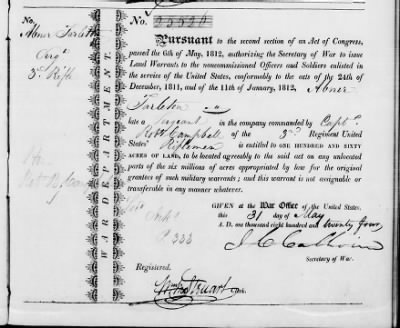 No.
Abner Tarleton
Sergt
3d Rifle
WAR DEPARTMENT.
No. 25526
Pursuant to the second section of an Act of Congress,
passed the 6th of May, 1812, authorizing the Secretary of War to issue
Land Warrants to the noncommissioned Officers and Soldiers enlisted
in the service of the United States, conformably to the acts of the 24th of
December, 1811, and of the 11th of January, 1812, Abner
Tarleton
late a Sergeant in the company commanded by Captn.
Robt Campbell of the 3rd Regiment United
States' Riflemen is entitled to ONE HUNDRED AND SIXTY
ACRES OF LAND, to be located agreeably to the said act on any unlocated
parts of the six millions of acres appropriated by law for the original
grantees of such military warrants; and this warrant is not assignable or
transferable in any manner whatever.
GIVEN at the War Office of the United States,
this 31 day of May
A. D. one thousand eight hundred and twenty four
P. 333
J. C. Calhoun
Secretary of War.
Registered.
Stuart Clk.